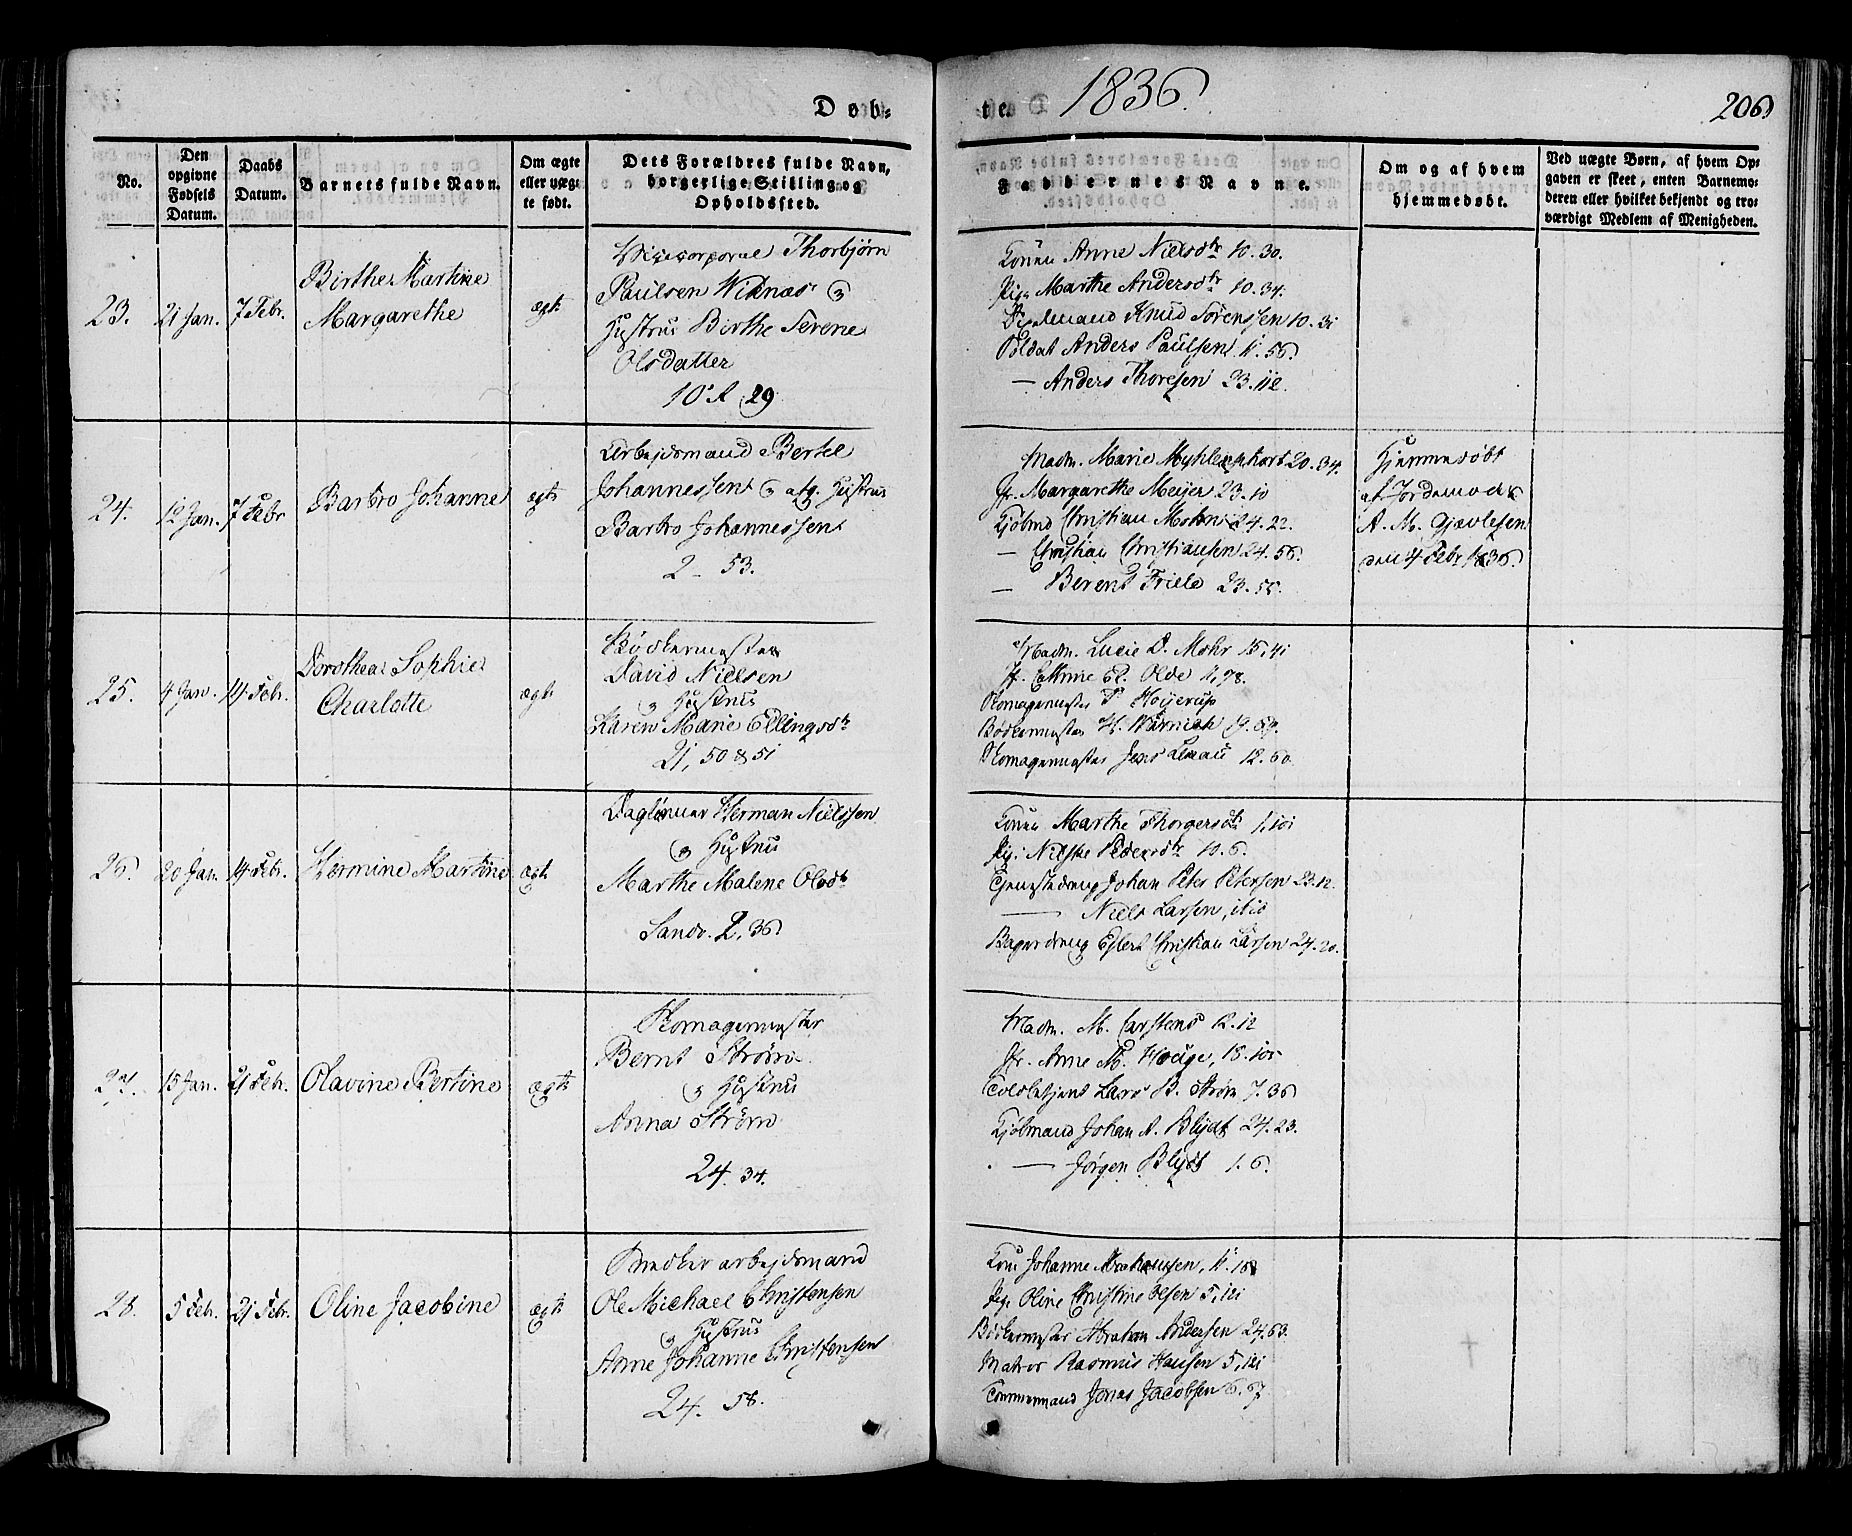 Døb-
te 1836.
206
No.
Den opgivne Fødsels Datum.
Daabs Datum.
Barnets fulde Navn.
Om ægte eller uægte født.
Dets Forældres fulde Navn, borgerlige Stilling og Opholdssted.
Faddernes Navne.
Om og af hvem hjemmedøbt.
Ved uægte Børn, af hvem Opgaven er skeet, enten Barnemoderen eller hvilket bekjendt og troværdigt Medlem af Menigheden.
23. 21 Jan. 7 Febr. Birthe Martine
Margarethe
ægte
Thorbjørn
Paulsen Widnæs og
Hustrue Birthe Serene
Olsdatter
10 A 29
Konen Anne Nielsdtr 10. 30.
Pig. Marthe Andersdtr 10. 34.
Knud Sørenssen 10. 31
Soldat Anders Paulsen 11. 56.
— Anders Thoresen 23. 112.
24. 12 Jan. 7 Febr Barbro Johanne ægte
Arbejdsmand Bertel
Johannessen og afg. Hustrue
Barbro Johannessen
2 - 53.
Madm. Marie Myhlenphort 20. 34.
Jfr. Margarethe Meijer 23. 10
Kjøbmd Christian Mohn 24. 22.
— Christian Christiansen 24. 56.
— Berent Friele 23. 55.
Hjemmedøbt
af Jordemoder
A. M. Gjævlesen
den 4 Febr 1836.
25. 4 Jan. 14 Febr. Dorothea Sophie
Charlotte
ægte
Bødkermester
David Nielsen
og Hustrue
Karen Marie Ellingsdtr
21, 50 & 51
Madm. Lucie D. Mohr 15, 41
Jfr. Cathrine El. Olde 1, 98.
Skomagermester P Høyerup
Bødkermester H. Wernich 9. 59.
Skomagermester Jens Lexau 12. 60
26. 20 Jan. 14 Febr. Hermine Martine ægte
Daglønner Herman Nielssen
og Hustrue
Marthe Malene Olsdtr
Sandv. 2, 36
Konen Marthe Thorgersdtr 1, 101
Pig. Nilske Pedersdtr 10. 6.
Tjenestedreng Johan Peter Petersen 23. 12.
— Niels Larsen, ibid
Bagerdreng Eilert Christian Larsen 24. 20.
27. 15 Jan. 21 Febr. Olavine Bertine ægte
Skomagermester
Bernt Strøm
og Hustrue
Anna Strøm
24. 34.
Madm. M. Carstens 12. 12
Jfr. Anne M. Houge, 18. 105
Toldbetjent Lars B. Strøm 7. 36
Kjøbmand Johan A. Blydt 24. 23.
— Jørgen Blydt 1. 6.
28. 5 Febr. 21 Febr. Oline Jacobine ægte
Snedker arbejdsmand
Ole Michael Christensen
og Hustrue
Anne Johanne Christensen
24. 58.
Kone Johanne Abrahamsen, 11. 108
Pige Oline Christine Olsen 5, 121
Bødkermester Abraham Andersen 24. 63.
Matros Rasmus Hansen 5, 121
Tømmermand Jonas Jacobsen 6. 67